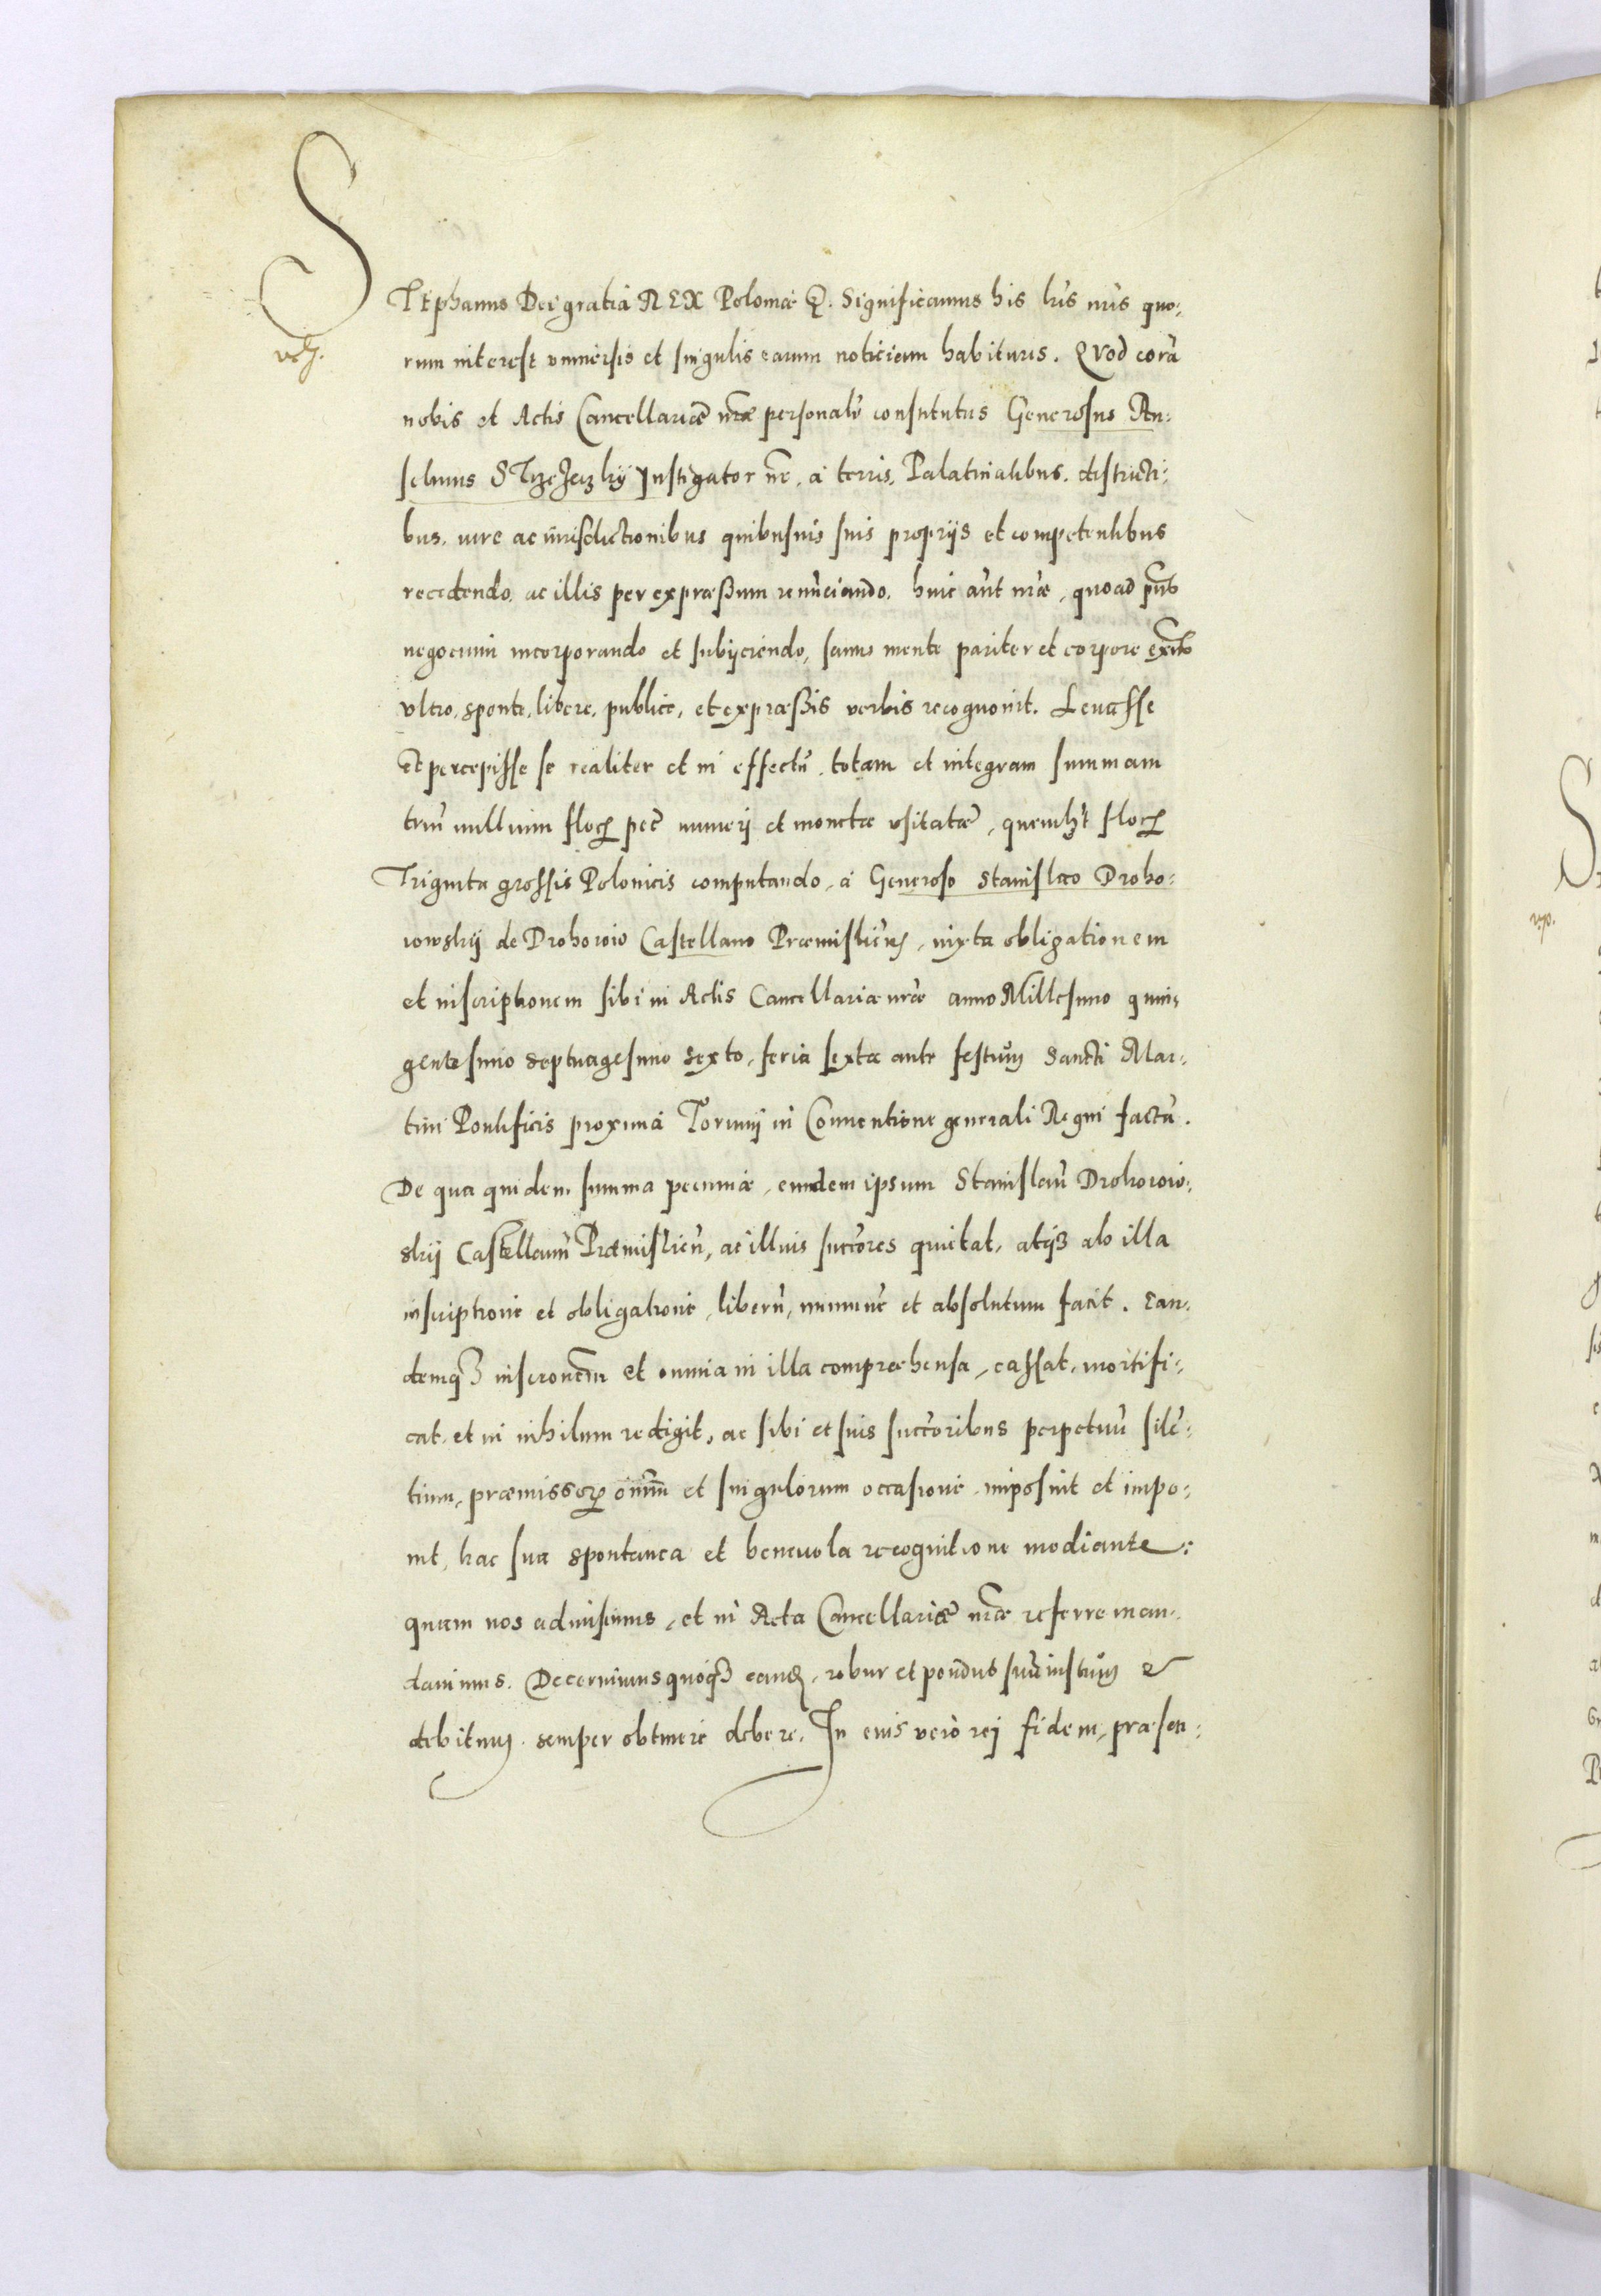 STEphanus Dei gratia REX Poloniæ &. Significamus his lr̃is nr̃is quo:
rum interest vniuersis et singulis earum noticiam habituris. QVod corã
nobis et Actis Cancellariæ nr̃æ personalr̃ constitutus Generosus An:
selmus STrzeżeczkÿ Instigator nr̃. á terris, Palatinatibus. districti:
bus, iure ac iurisdictionibus quibusuis suis proprijs et competentibus
recedendo, ac illis per expræßum renũciando, huic aũt nr̃æ, quoad pñs
negocium incorporando et subijciendo, sanus mente pariter et corpore exñs
vltro, sponte, libere, publice, et expræßis verbis recognouit. Leuasse
et percepisse se realiter et in effectu, totam et integram summam
triũ millium floꝝ pec̃ numeri et monetæ vsitatæ, quemlꝫt floꝝ
Triginta grossis Polonicis computando, á Generoso Stanislao Droho:
iowskÿ de Drohoiow Castellano Præmislieñ, iuxta obligationem
et inscriptionem sibi in Actis Cancellariæ nr̃æ anno Millesimo quin:
gentesimo septuagesimo sexto, feria sexta ante festum Sancti Mar:
tini Pontificis proxima Torunij in Conuentione generali Regni factã.
De qua quidem summa pecuniæ, eundem ipsum Stanislaũ Drohoiow:
skij Castellanũ Præmislieñ, ac illius succr̃es quietat, atqꝫ ab illa
inscriptione et obligatione, liberũ, immunẽ et absolutum facit. Ean:
demqꝫ inscr̃onem et omnia in illa compræhensa, cassat, mortifi:
cat, et in nihilum redigit, ac sibi et suis succr̃oribus perpetuũ silẽ:
tium, præmissorꝝ oĩnm̃ et singulorum occasione, imposuit et impo:
nit, hac sua spontanea et beneuola recognitione mediante:
quam nos admisimus, et in Acta Cancellariæ nr̃æ referre man:
dauimus. Decernimus quoqꝫ eand̃, robur et pondus suũ iustum &
debitum semper obtinere debere. In cuius vero rej fidem, præsen: